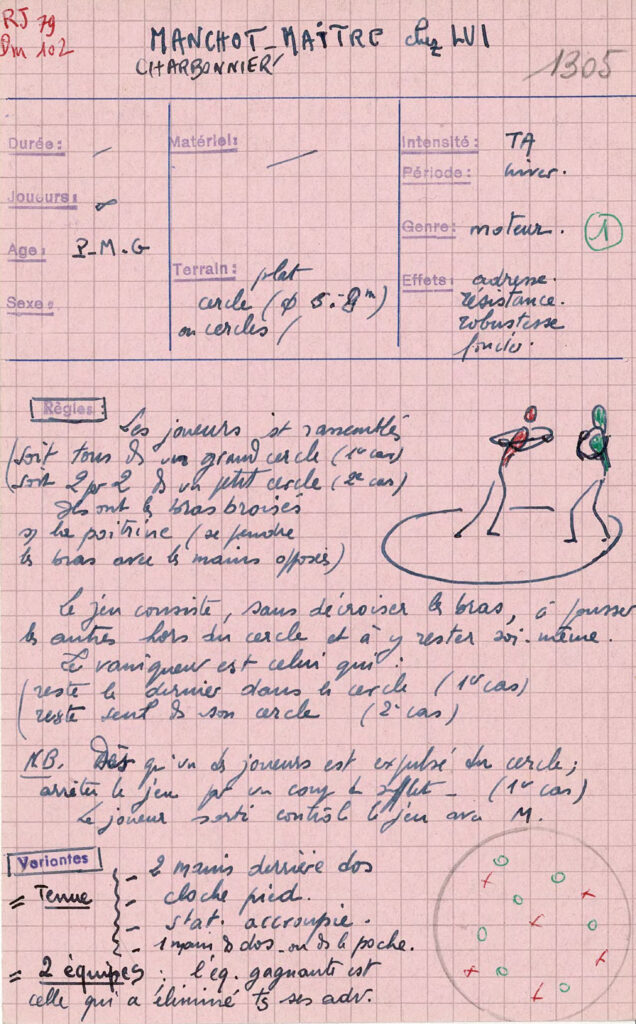 RJ 79
Dm 102
MANCHOT-MAÎTRE chez LUI
CHARBONNIER
1305
Durée: —
Joueurs: ∞
Age: P-M-G
Sexe:
Matériel: —
Terrain: plat
cercle (φ 5.-8m)
ou cercles
Intensité: TA
Période: hiver.
Genre: moteur. 1
Effets: adresse.
résistance.
robustesse
foncier.
Règles:
Les joueurs st rassemblés
(soit tous ds un grand cercle (1er cas)
(soit 2 pr 2 ds un petit cercle (2e cas)
Ils ont les bras croisés
s/ la poitrine (se prendre
les bras avec les mains opposées)
Le jeu consiste, sans décroiser les bras, à pousser
les autres hors du cercle et à y rester soi-même.
Le vainqueur est celui qui:
(reste le dernier dans le cercle (1er cas)
(reste seul ds son cercle (2e cas)
N.B. Dès qu'un ds joueurs est expulsé du cercle;
arrêter le jeu pr un coup de sifflet - (1er cas)
Le joueur sorti contrôle le jeu avec M.
Variantes
= Tenue
- 2 mains derrière dos
- cloche pied.
- stat. accroupie.
- 1 main ds dos - ou ds la poche.
= 2 équipes: l'éq. gagnante est
celle qui a éliminé ts ses adv.